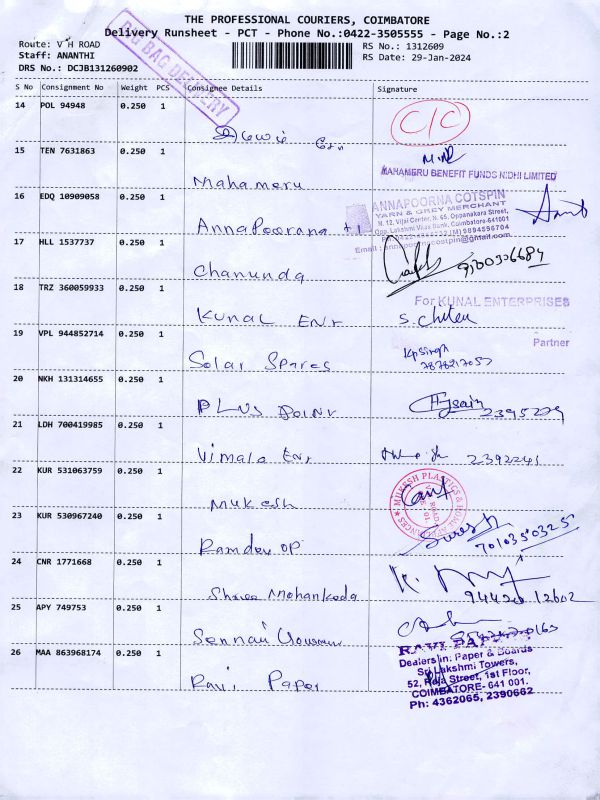 THE PROFESSIONAL COURIERS, COIMBATORE
Delivery Runsheet - PCT - Phone No.:0422-3505555 - Page No.:2
Route: V H ROAD
Staff: ANANTHI
DRS No.: DCJB131260902
RS No.: 1312609
RS Date: 29-Jan-2024
BAG DELIVERY
S No Consignment No Weight PCS Consignee Details Signature
14 POL 94948 0.250 1 C/C
15 TEN 7631863 0.250 1
Mahameru MAHAMERU BENEFIT FUNDS NIDHI LIMITED
16 EDQ 10909058 0.250 1
ANNAPOORNA COTSPIN
YARN & GREY MERCHANT
N. 12, Vijal Center, N. 65, Oppanakara Street,
Opp. Lakshmi Vilas Bank, Coimbatore-641001
(M) 9894556704
Email : annapoornacotspin@gmail.com
AnnaPoorana
17 HLL 1537737 0.250 1
Chanunda 9300306684
18 TRZ 360059933 0.250 1
For KUNAL ENTERPRISES
Kunal Enr
Partner
19 VPL 944852714 0.250 1
Solar Spares Kp Singh
7878217057
20 NKH 131314655 0.250 1
PLUS Poinr 2395229
21 LDH 700419985 0.250 1
Vimala Enr 2392241
22 KUR 531063759 0.250 1
MUKESH PLASTICS & HOME APPLIANCES
Mukesh
23 KUR 530967240 0.250 1
Ramdev OP Suresh
7010350325
24 CNR 1771668 0.250 1
Shree Mohankada 94420 12602
25 APY 749753 0.250 1
Sennai
26 MAA 863968174 0.250 1
RAVI PAPER
Dealers in: Paper & Boards
Sri Lakshmi Towers,
52, Raja Street, 1st Floor,
COIMBATORE- 641 001.
Ph: 4362065, 2390662
Ravi Paper